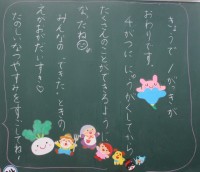 きょうで１がっきが
おわりです。
４がつににゅうがくしてから、
たくさんのことができるように
なったね
みんなの「できた」ときの
えがおがだいすき♡
たのしいなつやすみをすごしてね！